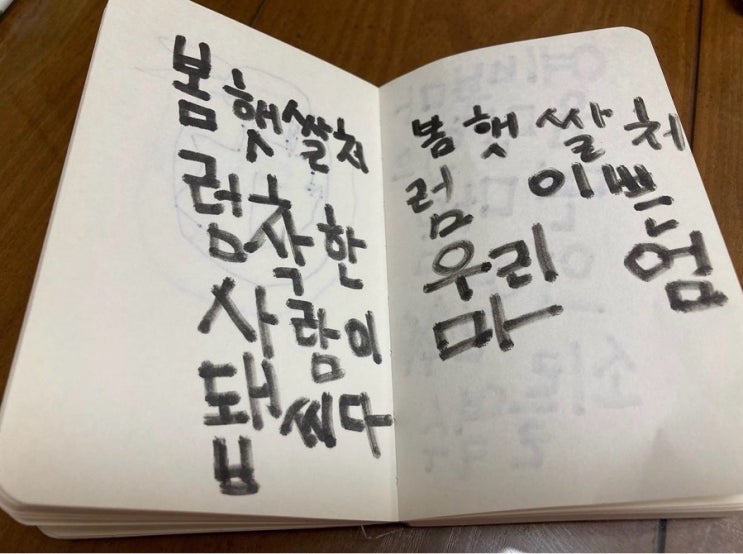 봄햇쌀처
럼착한
사람이
됍씨다
봄 햇 쌀 처
럼 이쁜
우리 엄
마